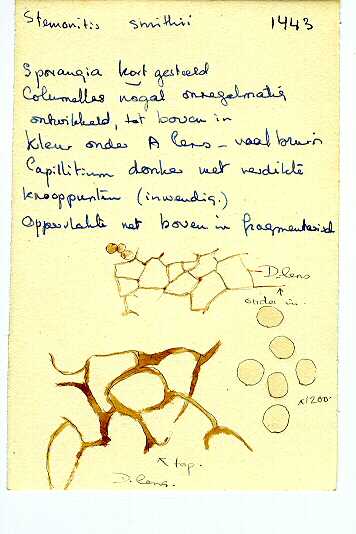 Stemonitis smithii 1443
Sporangia kort gesteeld
Columella nogal onregelmatig
ontwikkeld, tot boven in
Kleur onder A lens - vaalbruin
Capillitium donker met verdikte
knooppunten (inwendig.)
Oppervlakte net boven in fragmentarisch
D. lens
onder in.
x1200.
top.
D. lens.